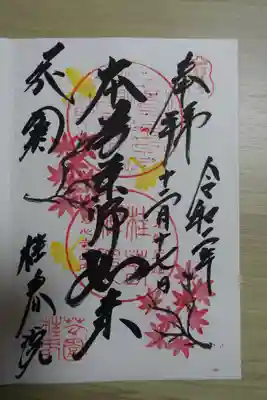 奉拝
令和二年
十一月十七日
本尊薬師如来
花園
桂春院